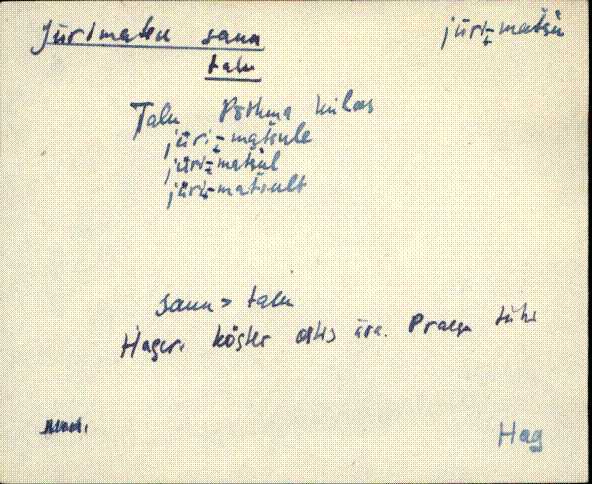 Jürimatsu saun jüri-matsu
talu
Talu Põhma külas
jüri-matsule
jüri-matsul
jüri-matsult
saun > talu
Hageri köster ostis ära. Praegu tühi
Hag